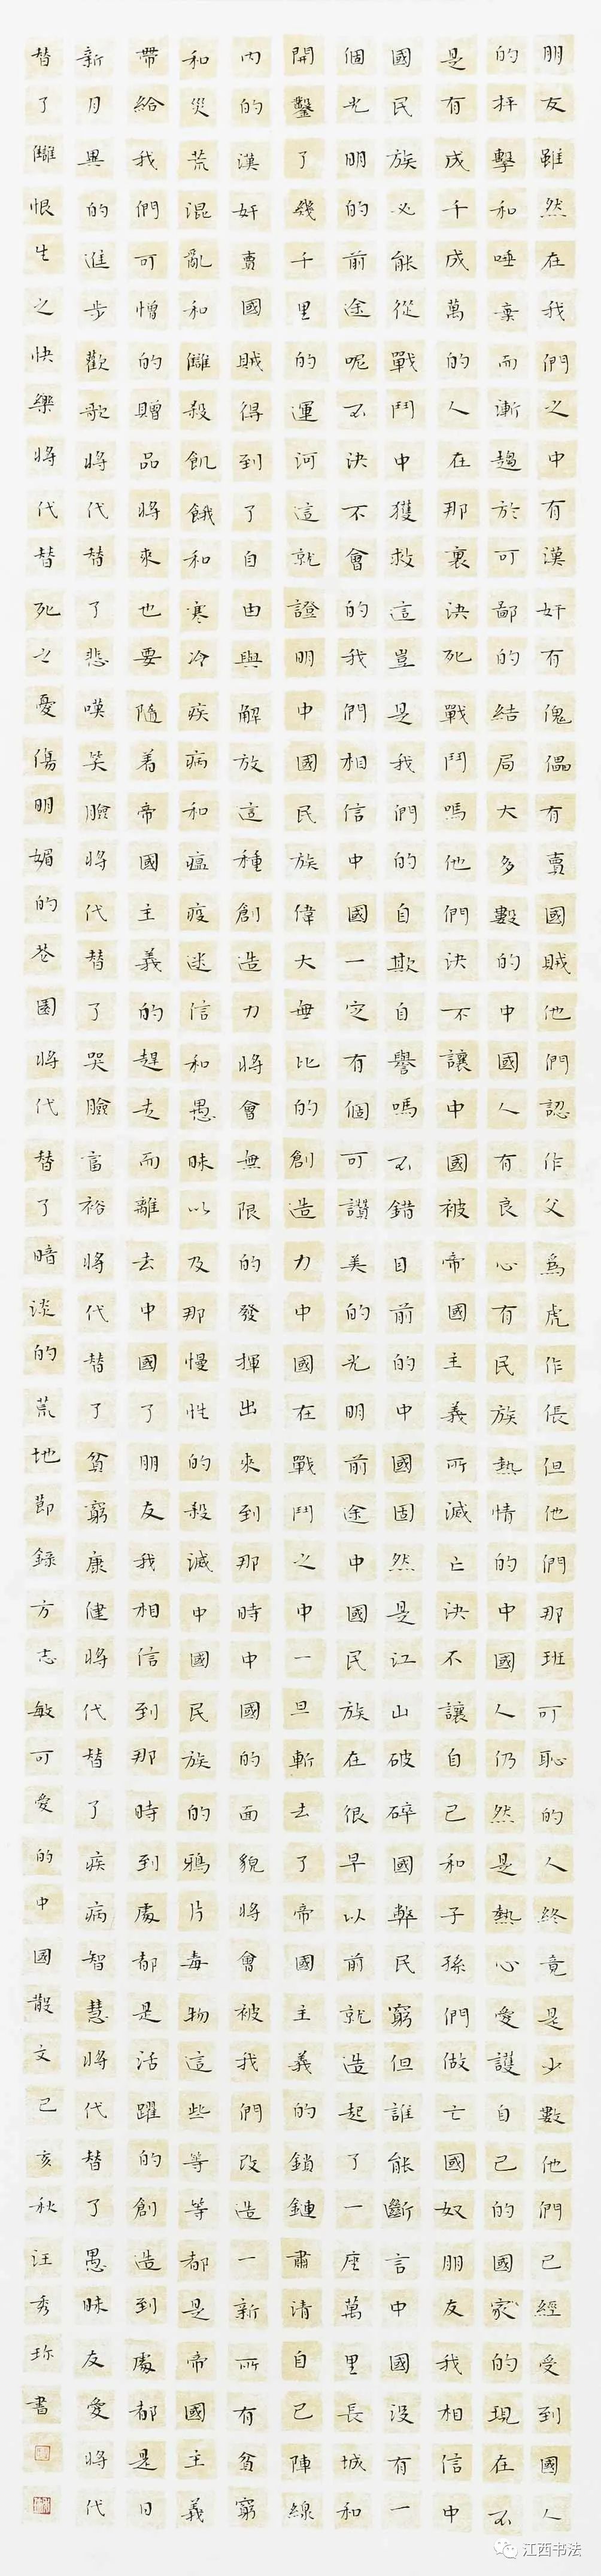 朋友雖然在我們之中有漢奸有傀儡有賣國賊他們認作父爲虎作倀但他們那班可恥的人終竟是少數他們已經受到國人
的抨擊和唾棄而漸趨於可鄙的結局大多數的中國人有良心有民族熱情的中國人仍然是熱心愛護自己的國家的現在不
是有成千成萬的人在那裏決死戰鬥嗎他們決不讓中國被帝國主義所滅亡決不讓自己和子孫們做亡國奴朋友我相信中
國民族必能從戰鬥中獲救這豈是我們的自欺自譽嗎不錯目前的中國固然是江山破碎國弊民窮但誰能斷言中國沒有一
個光明的前途呢不決不會的我們相信中國一定有個可讚美的光明前途中國民族在很早以前就造起了一座萬里長城和
開鑿了幾千里的運河這就證明中國民族偉大無比的創造力中國在戰鬥之中一旦斬去了帝國主義的鎖鏈肅清自己陣線
內的漢奸賣國賊得到了自由與解放這種創造力將會無限的發揮出來到那時中國的面貌將會被我們改造一新所有貧窮
和災荒混亂和讎殺飢餓和寒冷疾病和瘟疫迷信和愚昧以及那慢性的殺滅中國民族的鴉片毒物這些等等都是帝國主義
帶給我們可憎的贈品將來也要隨着帝國主義的趕走而離去中國了朋友我相信到那時到處都是活躍的創造到處都是日
新月異的進步歡歌將代替了悲嘆笑臉將代替了哭臉富裕將代替了貧窮康健將代替了疾病智慧將代替了愚昧友愛將代
替了讎恨生之快樂將代替死之憂傷明媚的花園將代替了暗淡的荒地節錄方志敏可愛的中國散文己亥秋汪秀珍書
江西书法